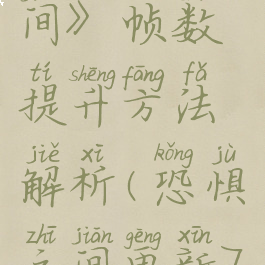 间》帧数
tí shēng fāng fǎ
提升方法
jiě xī kǒng jù
解析(恐惧
zhī jiān gēng xīn
之间更新